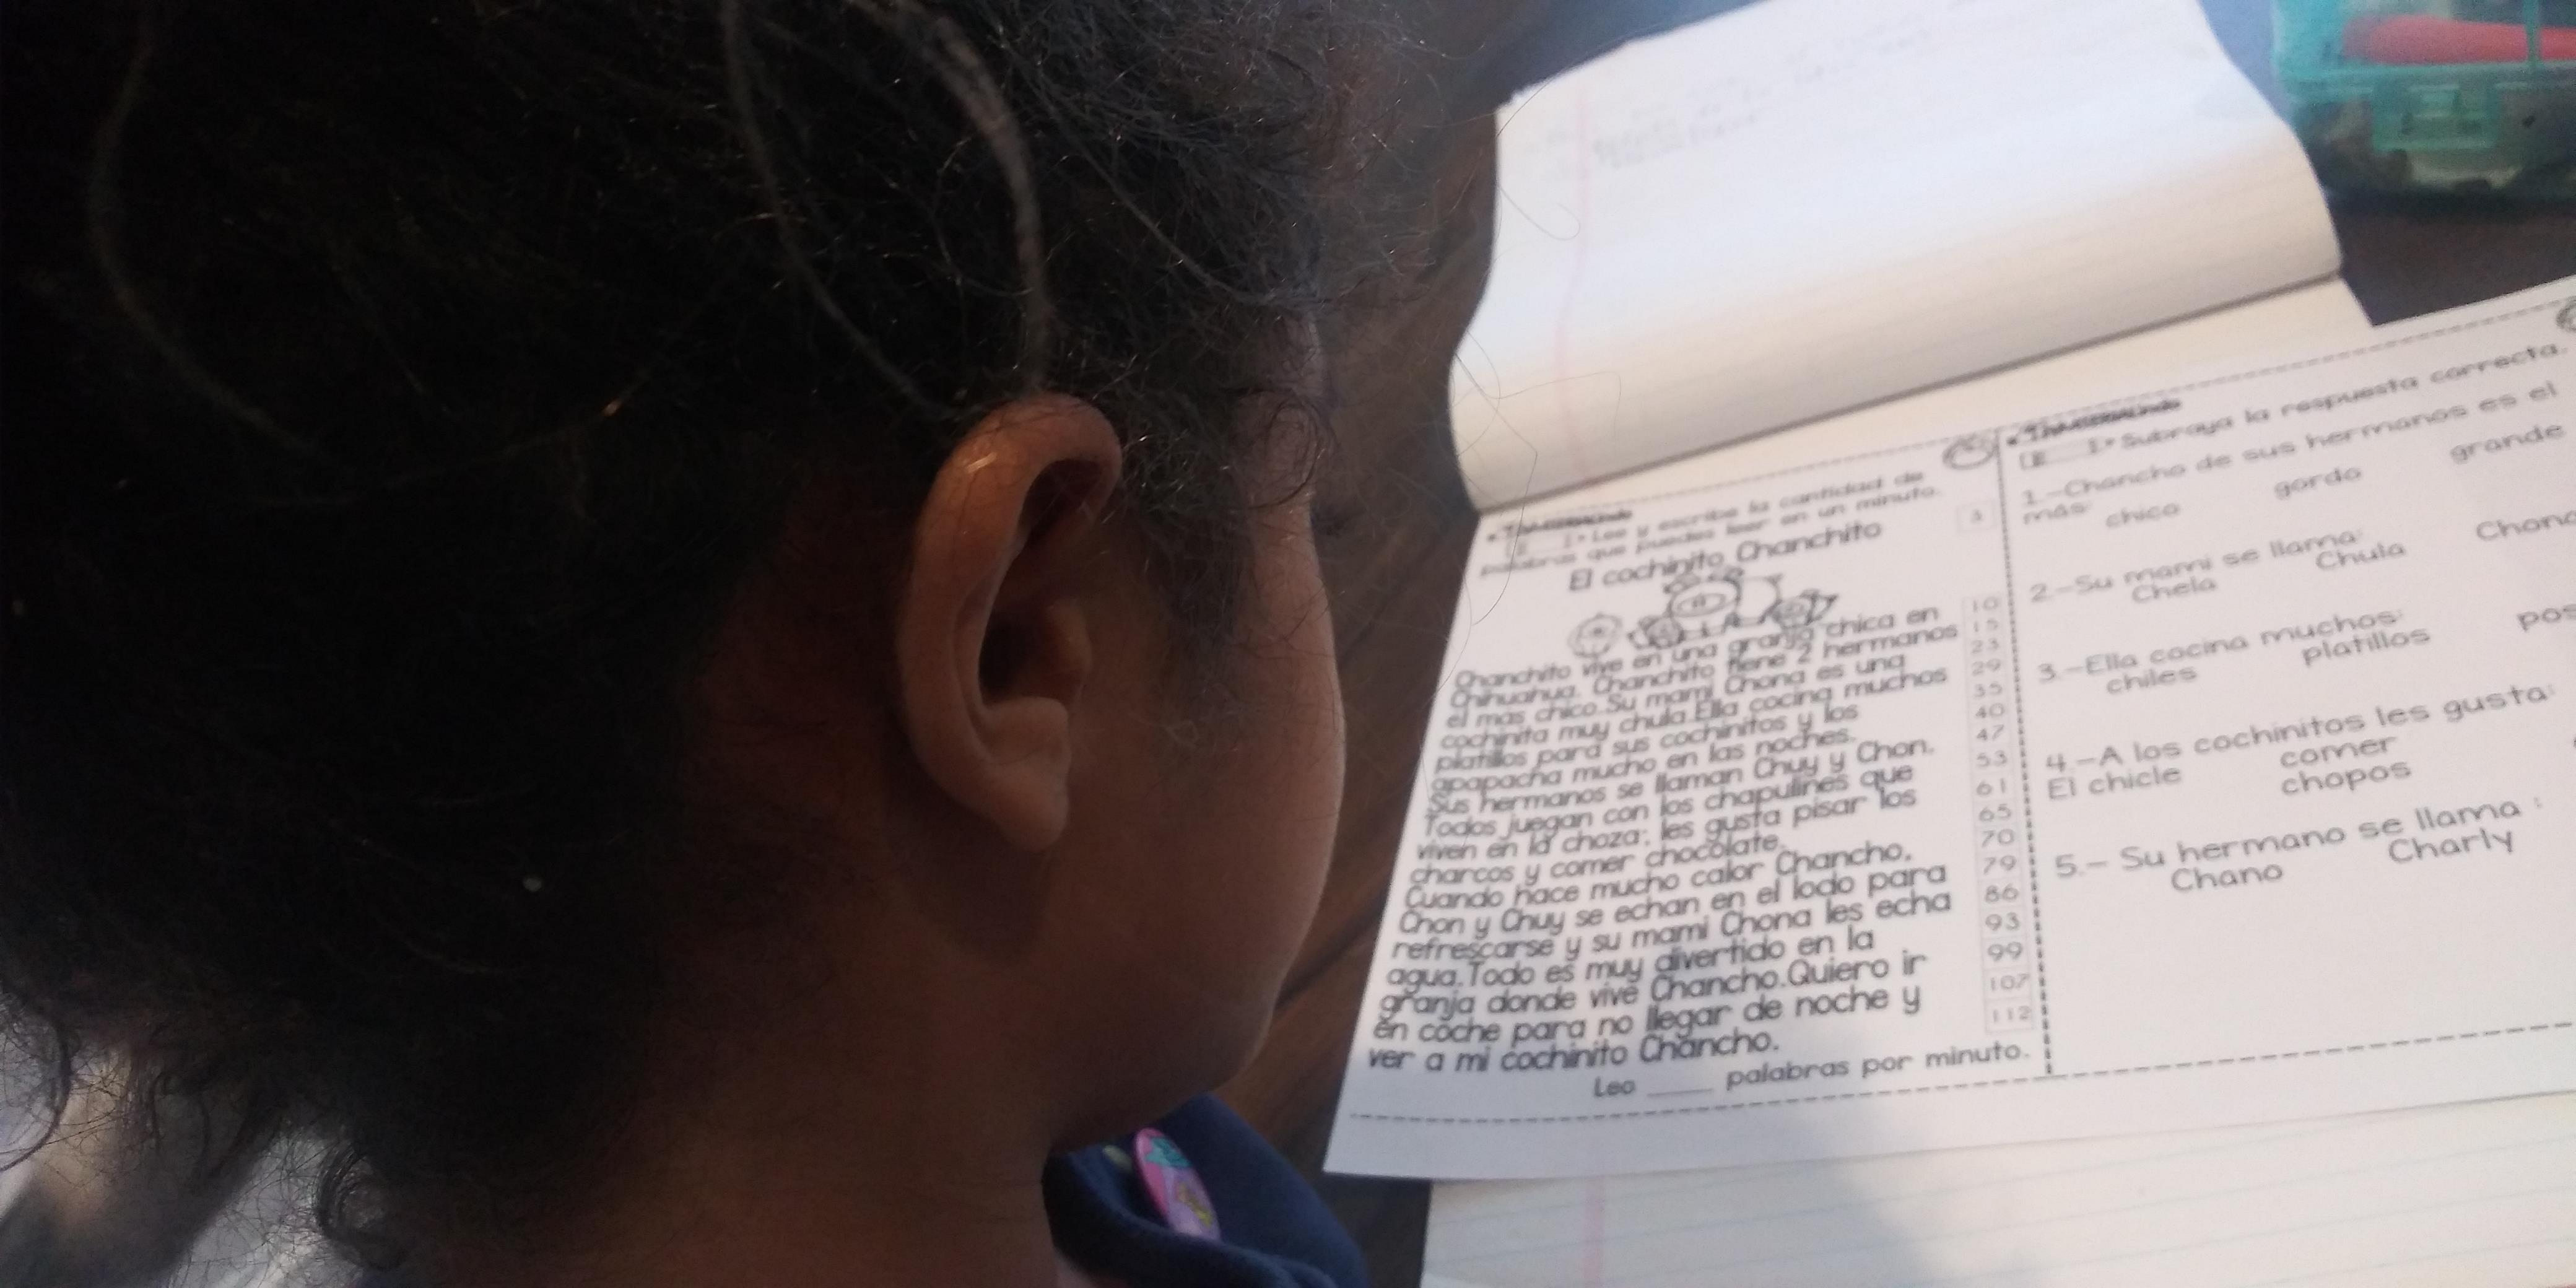 1.- Lee y escribe la cantidad de
palabras que puedes leer en un minuto.
El cochinito Chanchito
3
Chanchito vive en una granja chica en
10
Chihuahua. Chanchito tiene 2 hermanos
15
el mas chico.Su mami Chona es una
23
cochinita muy chula.Ella cocina muchos
29
platillos para sus cochinitos y los
35
apapacha mucho en las noches.
40
Sus hermanos se llaman Chuy y Chon.
47
Todos juegan con los chapulines que
53
viven en la choza; les gusta pisar los
61
charcos y comer chocolate.
65
Cuando hace mucho calor Chancho,
70
Chon y Chuy se echan en el lodo para
79
refrescarse y su mami Chona les echa
86
agua.Todo es muy divertido en la
93
granja donde vive Chancho.Quiero ir
99
en coche para no llegar de noche y
107
ver a mi cochinito Chancho.
112
Leo ____ palabras por minuto.
1.- Subraya la respuesta correcta.
1.-Chancho de sus hermanos es el
más:
chico gordo grande
2.-Su mami se llama:
Chela Chula
3.-Ella cocina muchos:
chiles platillos
4.-A los cochinitos les gusta:
El chicle comer
chopos
5.- Su hermano se llama :
Chano Charly